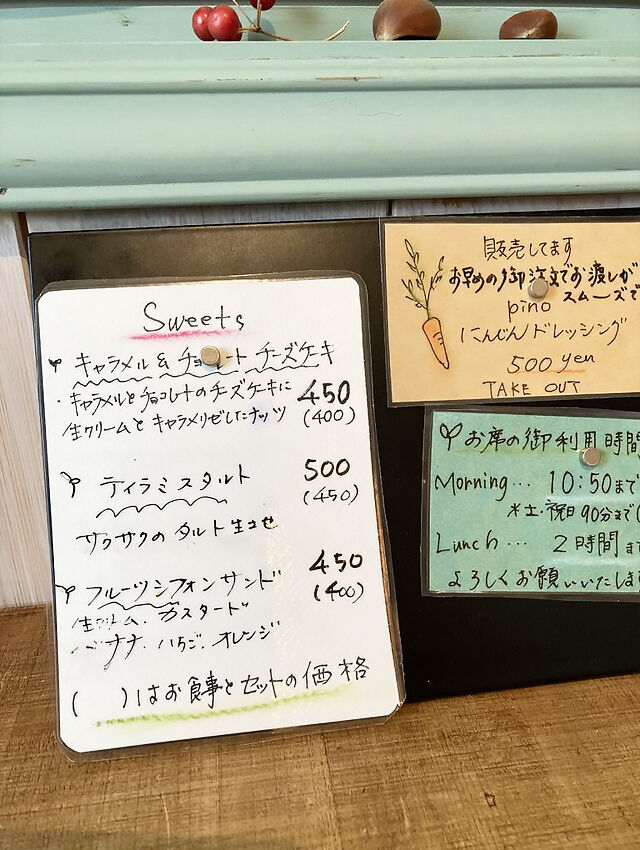 Sweets
キャラメル & チョコレート チーズケーキ
・キャラメルとチョコレートのチーズケーキに 450
生クリームとキャラメリゼしたナッツ (400)
ティラミスタルト 500
(450)
サクサクの タルト生地
450
フルーツシフォンサンド (400)
生クリーム、カスタード
バナナ、いちご、オレンジ
( )はお食事とセットの価格
販売してます
お早めの御注文でお渡しが
スムーズで
pino
にんじんドレッシング
500 yen
TAKE OUT
お席の御利用時間
Morning… 10:50まで
※土・祝日 90分まで(
Lunch … 2時間ま
よろしくお願いいたしま